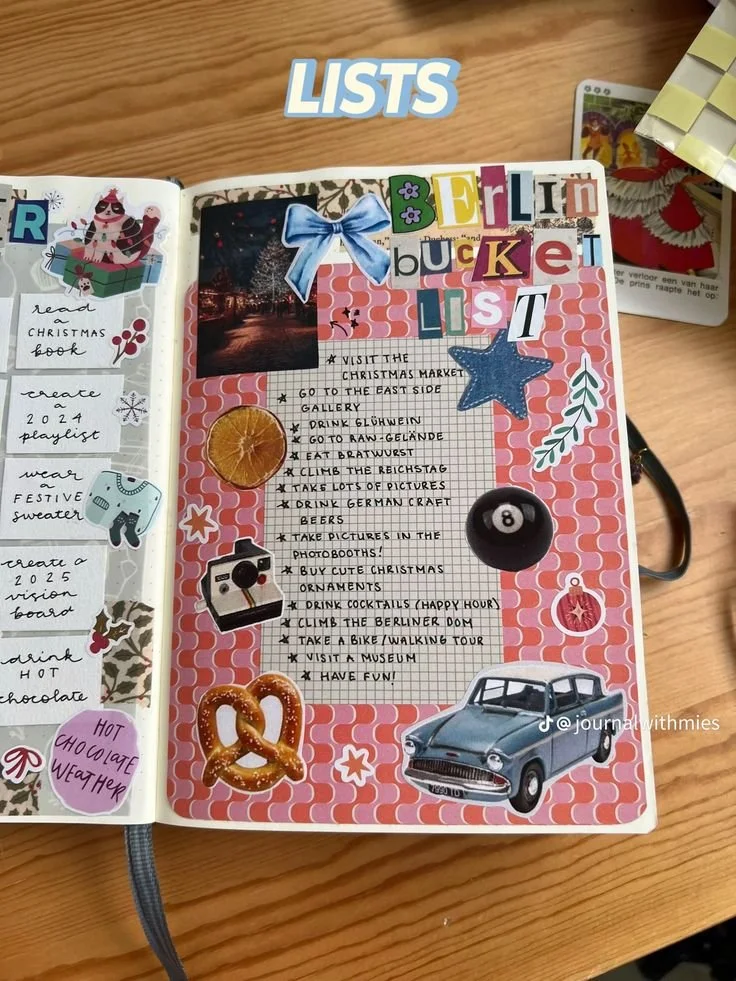 LISTS
R
read
a
CHRISTMAS
book
create
a
2024
playlist
wear
a
FESTIVE
sweater
create a
2025
vision
board
drink
HOT
chocolate
HOT
CHOCOLATE
WEATHER
BErlin
bucKet
LIST
* VISIT THE
CHRISTMAS MARKET
* GO TO THE EAST SIDE
GALLERY
* DRINK GLÜHWEIN
* GO TO RAW-GELÄNDE
* EAT BRATWURST
* CLIMB THE REICHSTAG
* TAKE LOTS OF PICTURES
* DRINK GERMAN CRAFT
BEERS
* TAKE PICTURES IN THE
PHOTOBOOTHS!
* BUY CUTE CHRISTMAS
ORNAMENTS
* DRINK COCKTAILS (HAPPY HOUR)
* CLIMB THE BERLINER DOM
* TAKE A BIKE/WALKING TOUR
* VISIT A MUSEUM
* HAVE FUN!
8
@journalwithmies
er verloor een van haar
De prins raapte het op: